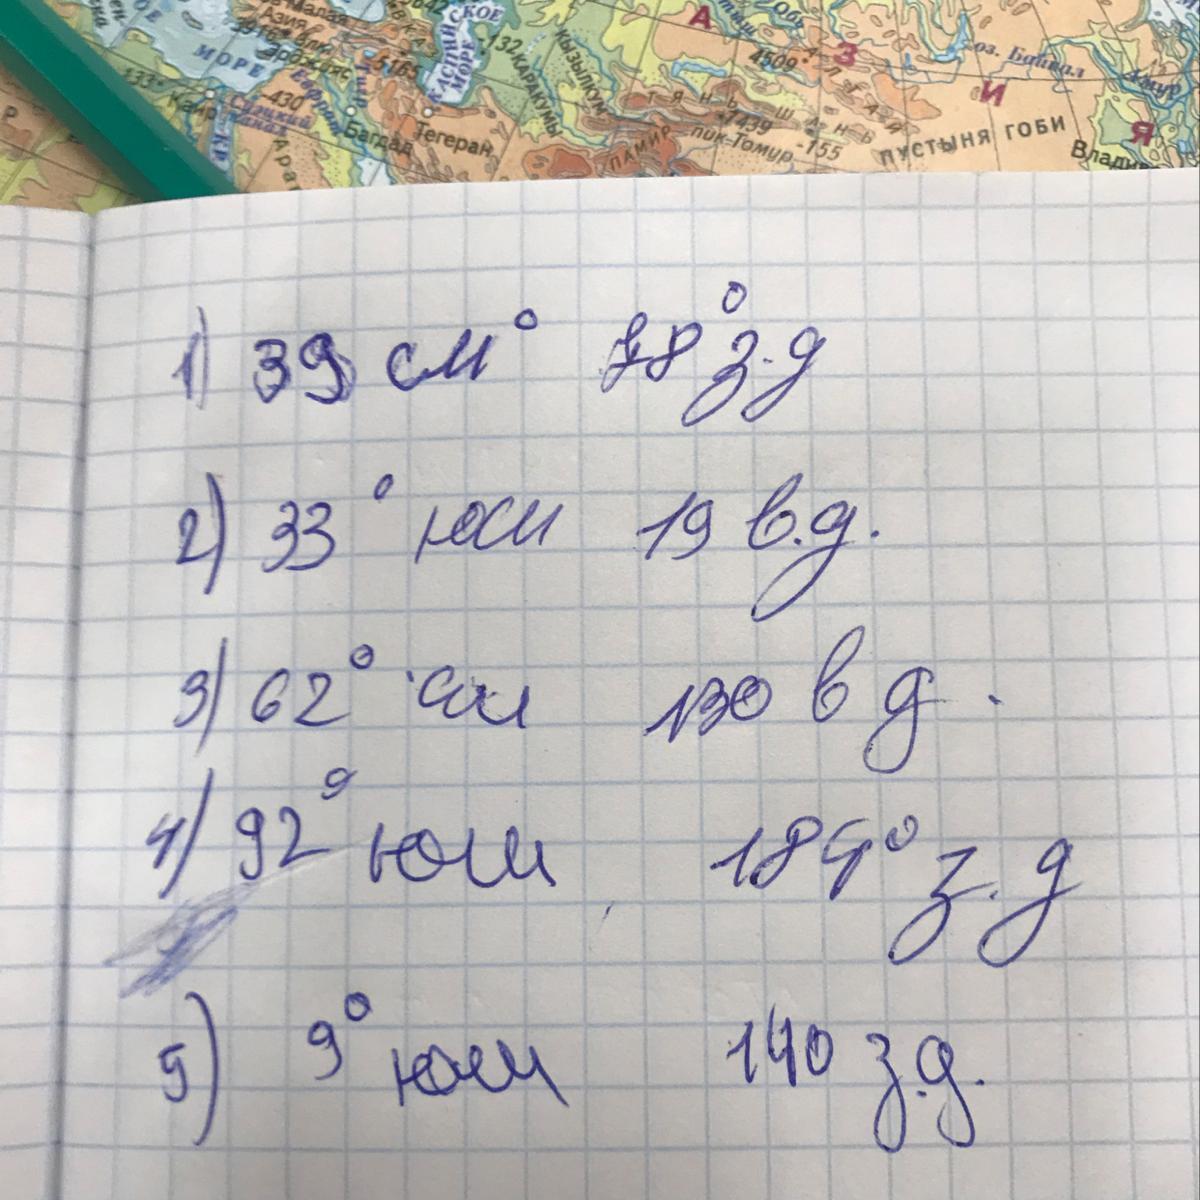 МОРЕ
Малая
Азия
5165
КАСПИЙСКОЕ
МОРЕ
-132
КАРАКУМЫ
КЫЗЫЛКУМ
Обь
4509
А
З
И
Я
оз. Байкал
Амур
Каир
Суэцкий
канал
-430
Евфрат
Багдад
Тегеран
ТЯНЬ-ШАНЬ
7439
ПАМИР
пик-Томур
-155
ПУСТЫНЯ ГОБИ
Владив
1) 39 см° 78° з.д
2) 33° юш 19 в.д.
3) 62° сш 130 в д.
4) 92° юш 184° з.д
5) 9° юш 140 з.д.